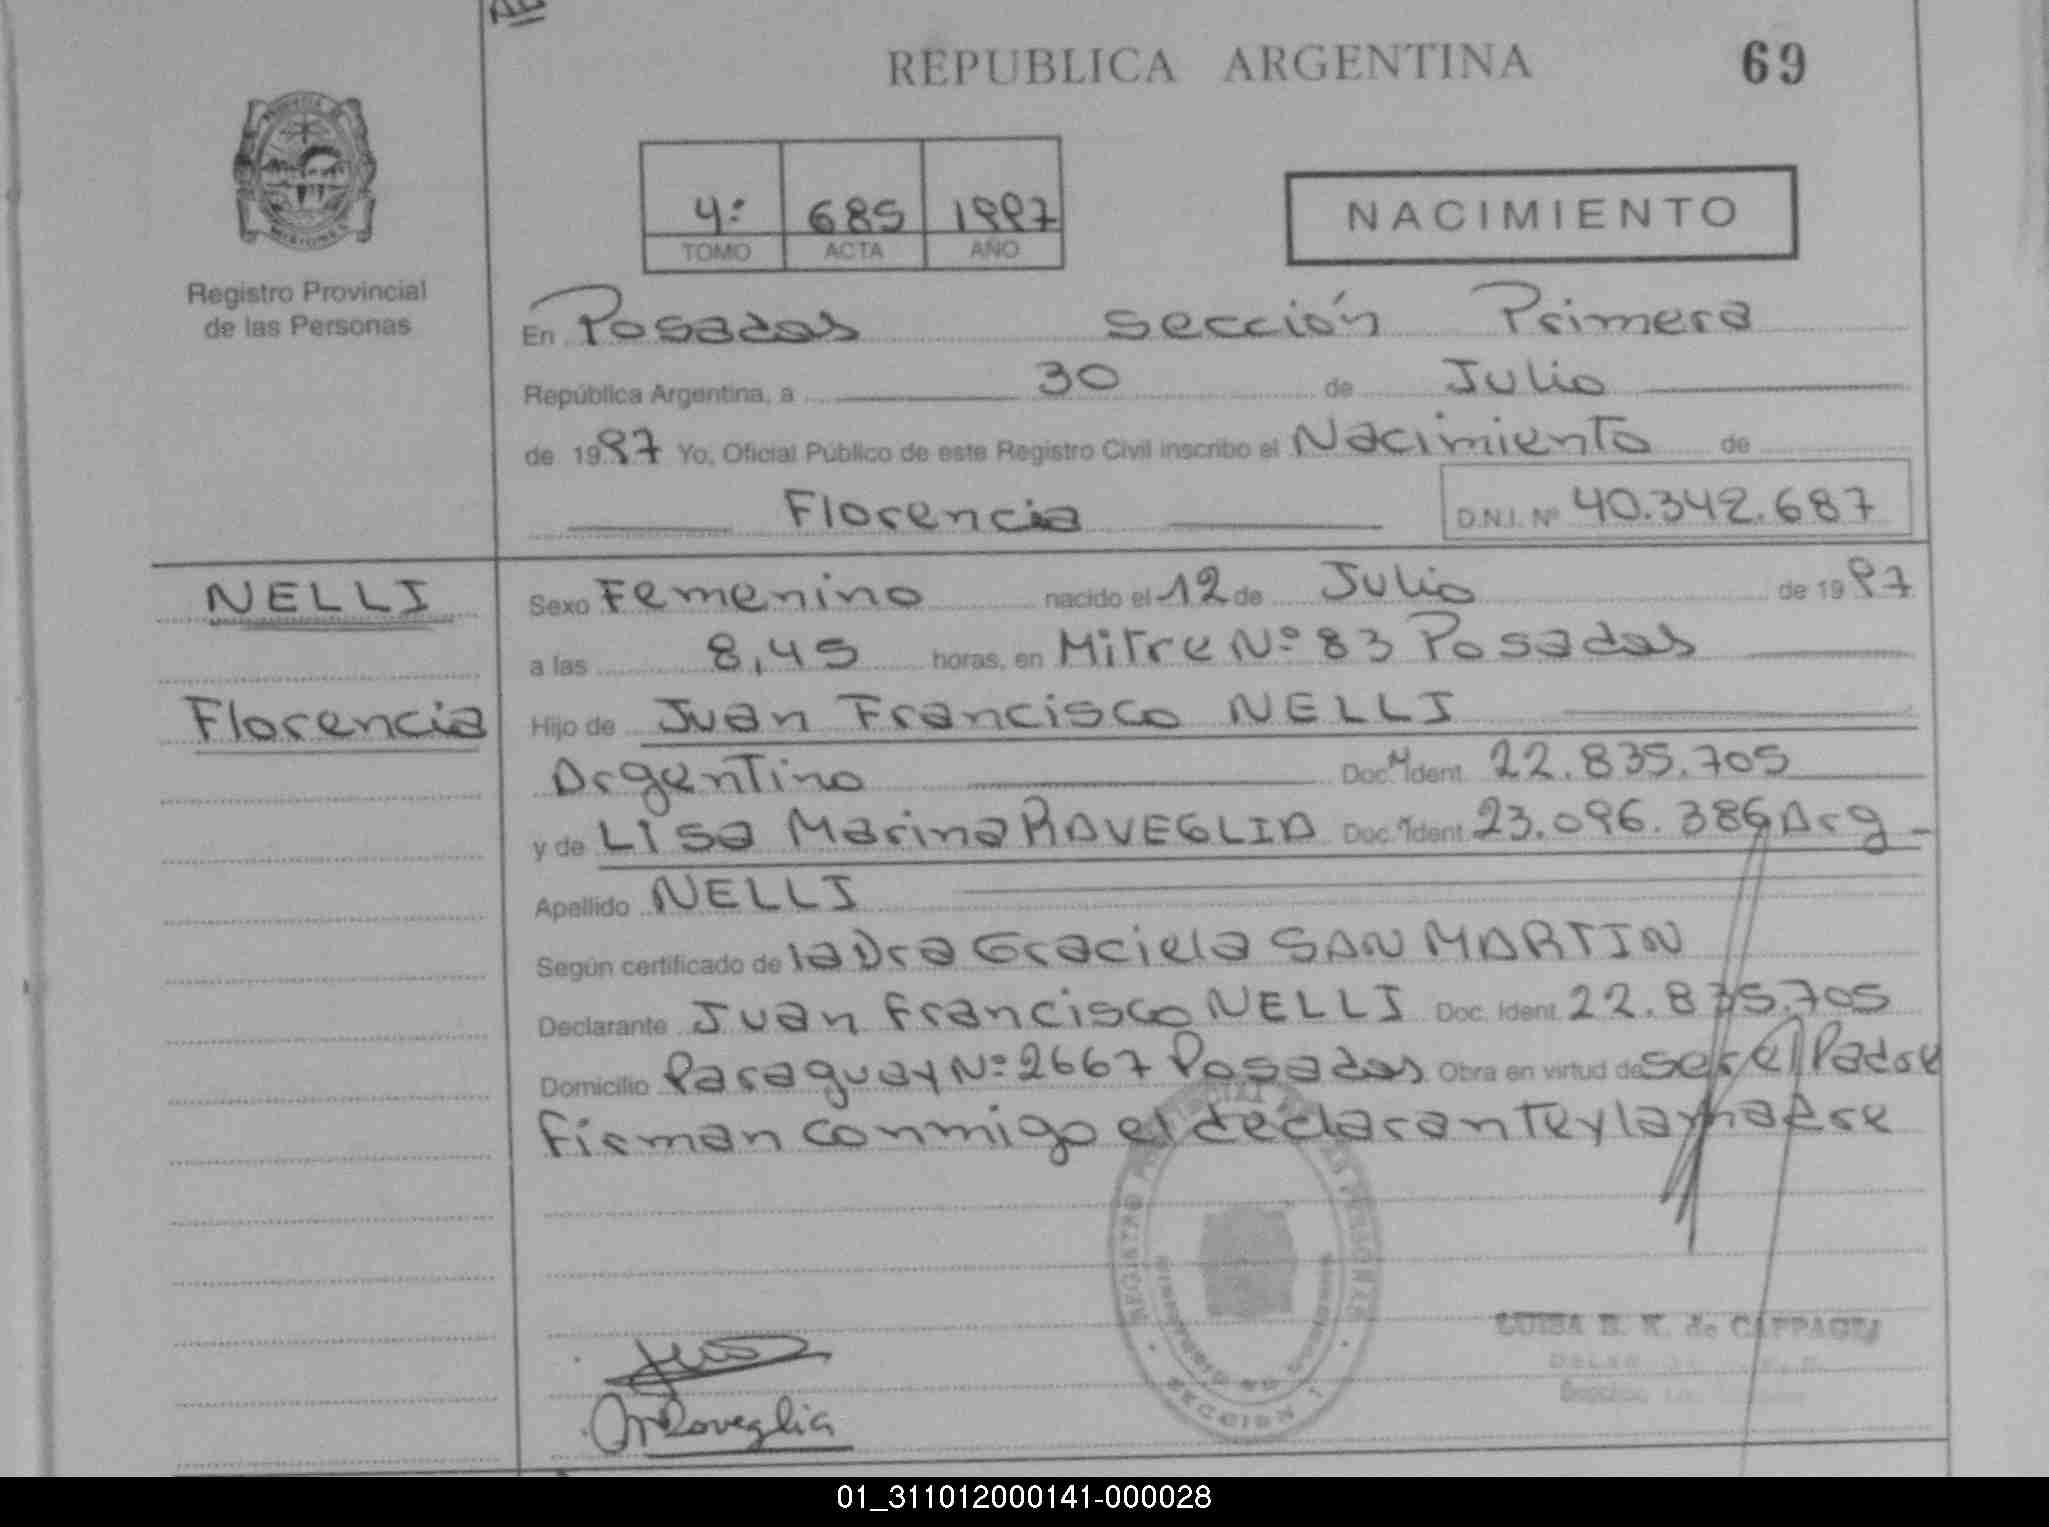 REPUBLICA ARGENTINA
69
4º 685 1997
TOMO ACTA AÑO
NACIMIENTO
MISIONES
Registro Provincial
de las Personas
En Posadas sección Primera
República Argentina, a 30 de Julio
de 1997 Yo, Oficial Público de este Registro Civil inscribo el Nacimiento de
Florencia
D.N.I. Nº 40.342.687
NELLI
Florencia
Sexo Femenino nacido el 12 de Julio de 1997
a las 8,45 horas, en Mitre Nº 83 Posadas
Hijo de Juan Francisco NELLI
Argentino Doc. Ident. 22.835.705
y de Lisa Marina RAVEGLIA Doc. Ident. 23.096.386 Arg
Apellido NELLI
Según certificado de la Dra Graciela SAN MARTIN
Declarante Juan Francisco NELLI Doc. Ident. 22.835.705
Domicilio Paraguay Nº 2667 Posadas Obra en virtud de ser el Padre
Firman conmigo el declarante y la madre
REGISTRO DE LAS PERSONAS
SECCION 1
LUISA B. K. de CAPPAGLI
Raveglia
01_311012000141-000028